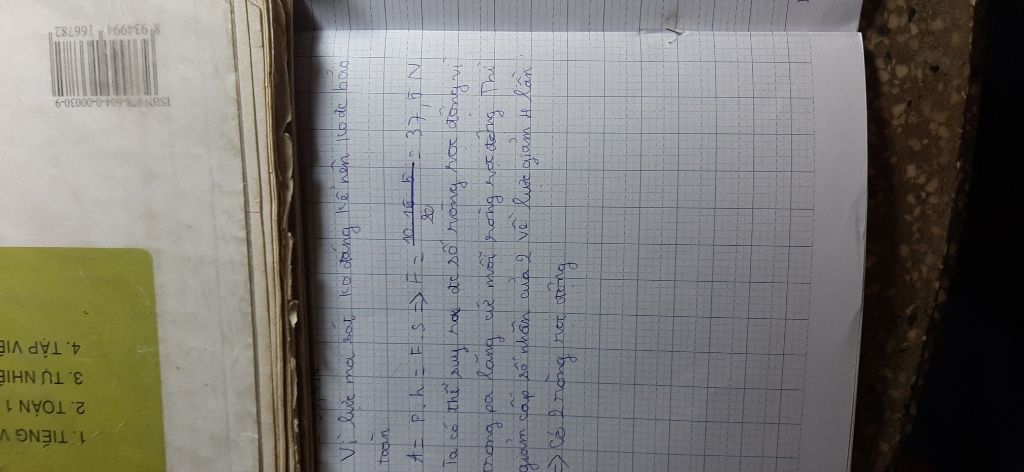 Vì lực ma sát ko đáng kể nên ko đc bảo
toàn
A = P.h = F.s => F = 10.15.5 / 20 = 37,5 N
Ta có thể suy ra đc số ròng rọc động vì
trong pa lăng cứ mỗi ròng rọc động thì
giảm cấp số nhân của 2 về lực giảm 4 lần
=> Có 2 ròng rọc động
ISBN 978-604-0-00030-9
8 934994 166782
1. TIẾNG V
2. TOÁN 1
3. TỰ NHIÊ
4. TẬP VIẾ